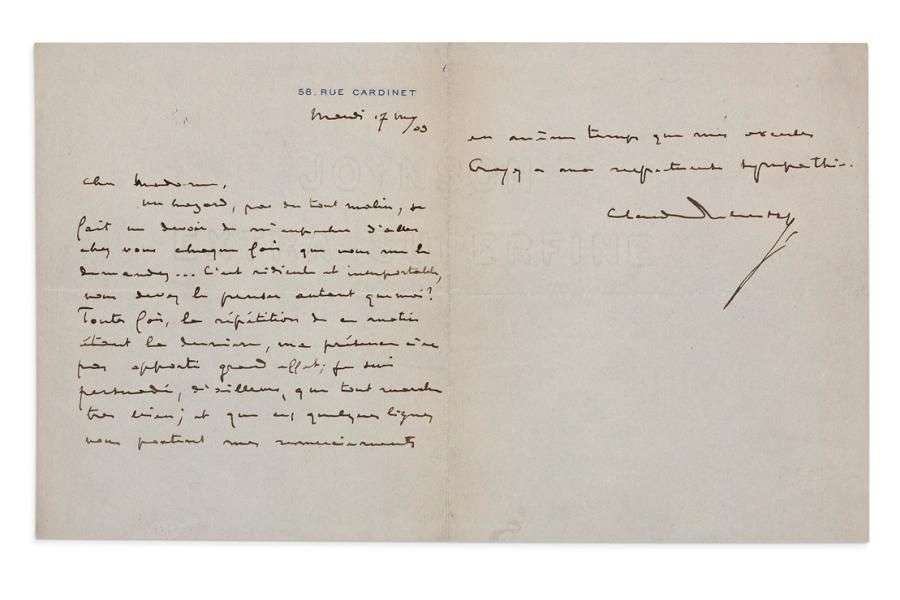 58. RUE CARDINET
Mardi 17
03
Chère Madame,
Un hazard, pas du tout malin, se
fait un devoir de m'empêcher d'aller
chez vous chaque fois que vous me le
demandez... C'est ridicule et insupportable,
vous devez le penser autant que moi?
Toutes fois, la répétition de ce matin
étant la dernière, ma présence n'eut
pas apporté grand effet; je suis
persuadé, d'ailleurs, que tout marche
très bien; et que ces quelques lignes
vous portent mes remerciements
en même temps que mes excuses
Croyez à ma respectueuse sympathie.
Claude Debussy